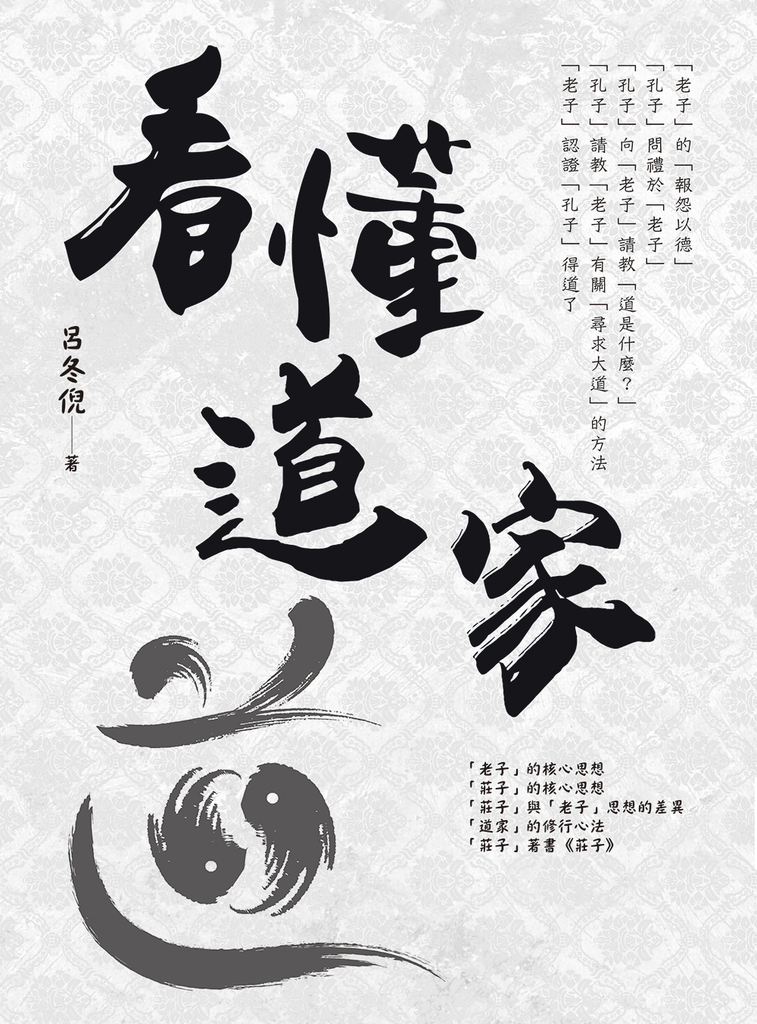 看懂
道家
「老子」的「報怨以德」
「孔子」問禮於「老子」
「孔子」向「老子」請教「道是什麼？」
「孔子」請教「老子」有關「尋求大道」的方法
「老子」認證「孔子」得道了
呂冬倪——著
道
「老子」的核心思想
「莊子」的核心思想
「莊子」與「老子」思想的差異
「道家」的修行心法
「莊子」著書《莊子》